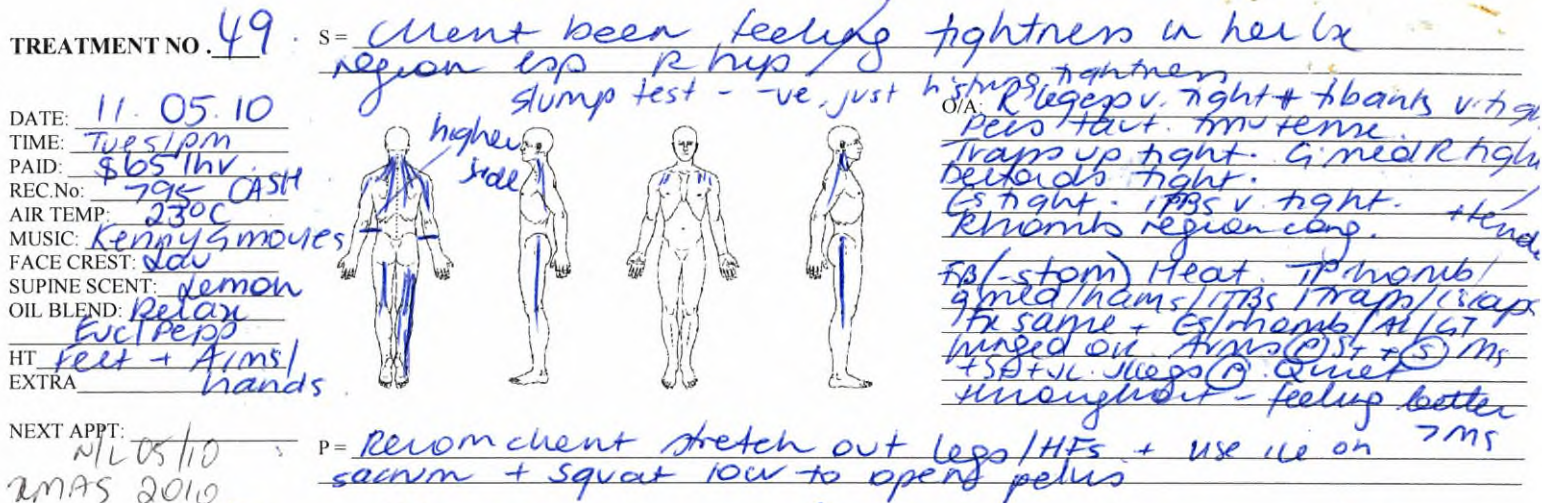 TREATMENT NO. 49. S = Client been feeling tightness in her Lx
region esp R hip
slump test - -ve, just h'strings tightness
DATE: 11. 05. 10
TIME: Tues 1pm
PAID: $65 1hr.
REC.No: 795 CASH
AIR TEMP: 23°C
MUSIC: Kenny G movies
FACE CREST: Lav
SUPINE SCENT: Lemon
OIL BLEND: Relax
Euc/Pepp
HT feet + Arms/
EXTRA hands.
higher
side
O/A: R leg esp v. tight + tibants v. tight
Pecs taut. tense.
Traps up tight. G. med R tight
Deltoids tight.
Es tight. ITBs v. tight.
Rhomb region cong. + tender
FB (-stom) Heat. TP rhomb/
gmed/hams/ITBs/Traps/
Tx same + Es/rhomb/
Arms (P) St + (S) Ms
legs (P). Quiet
throughout - feeling better
> Ms
NEXT APPT:
N/L 05/10
XMAS 2010
P = Recom client stretch out legs/HFs + use ice on
sacrum + squat low to open pelvis